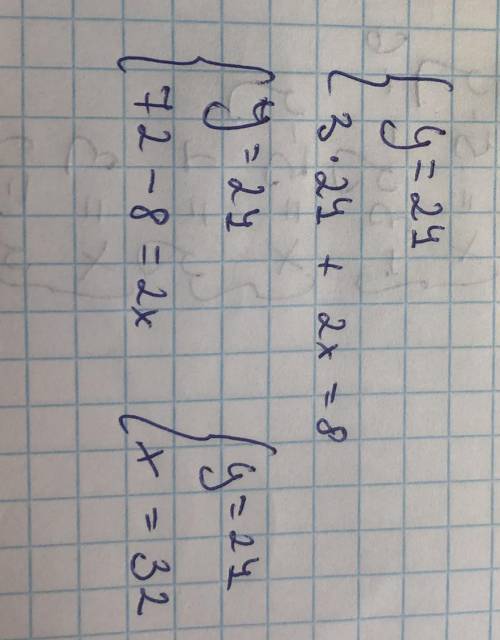 y = 24
3 · 24 + 2x = 8
y = 24
72 - 8 = 2x
y = 24
x = 32